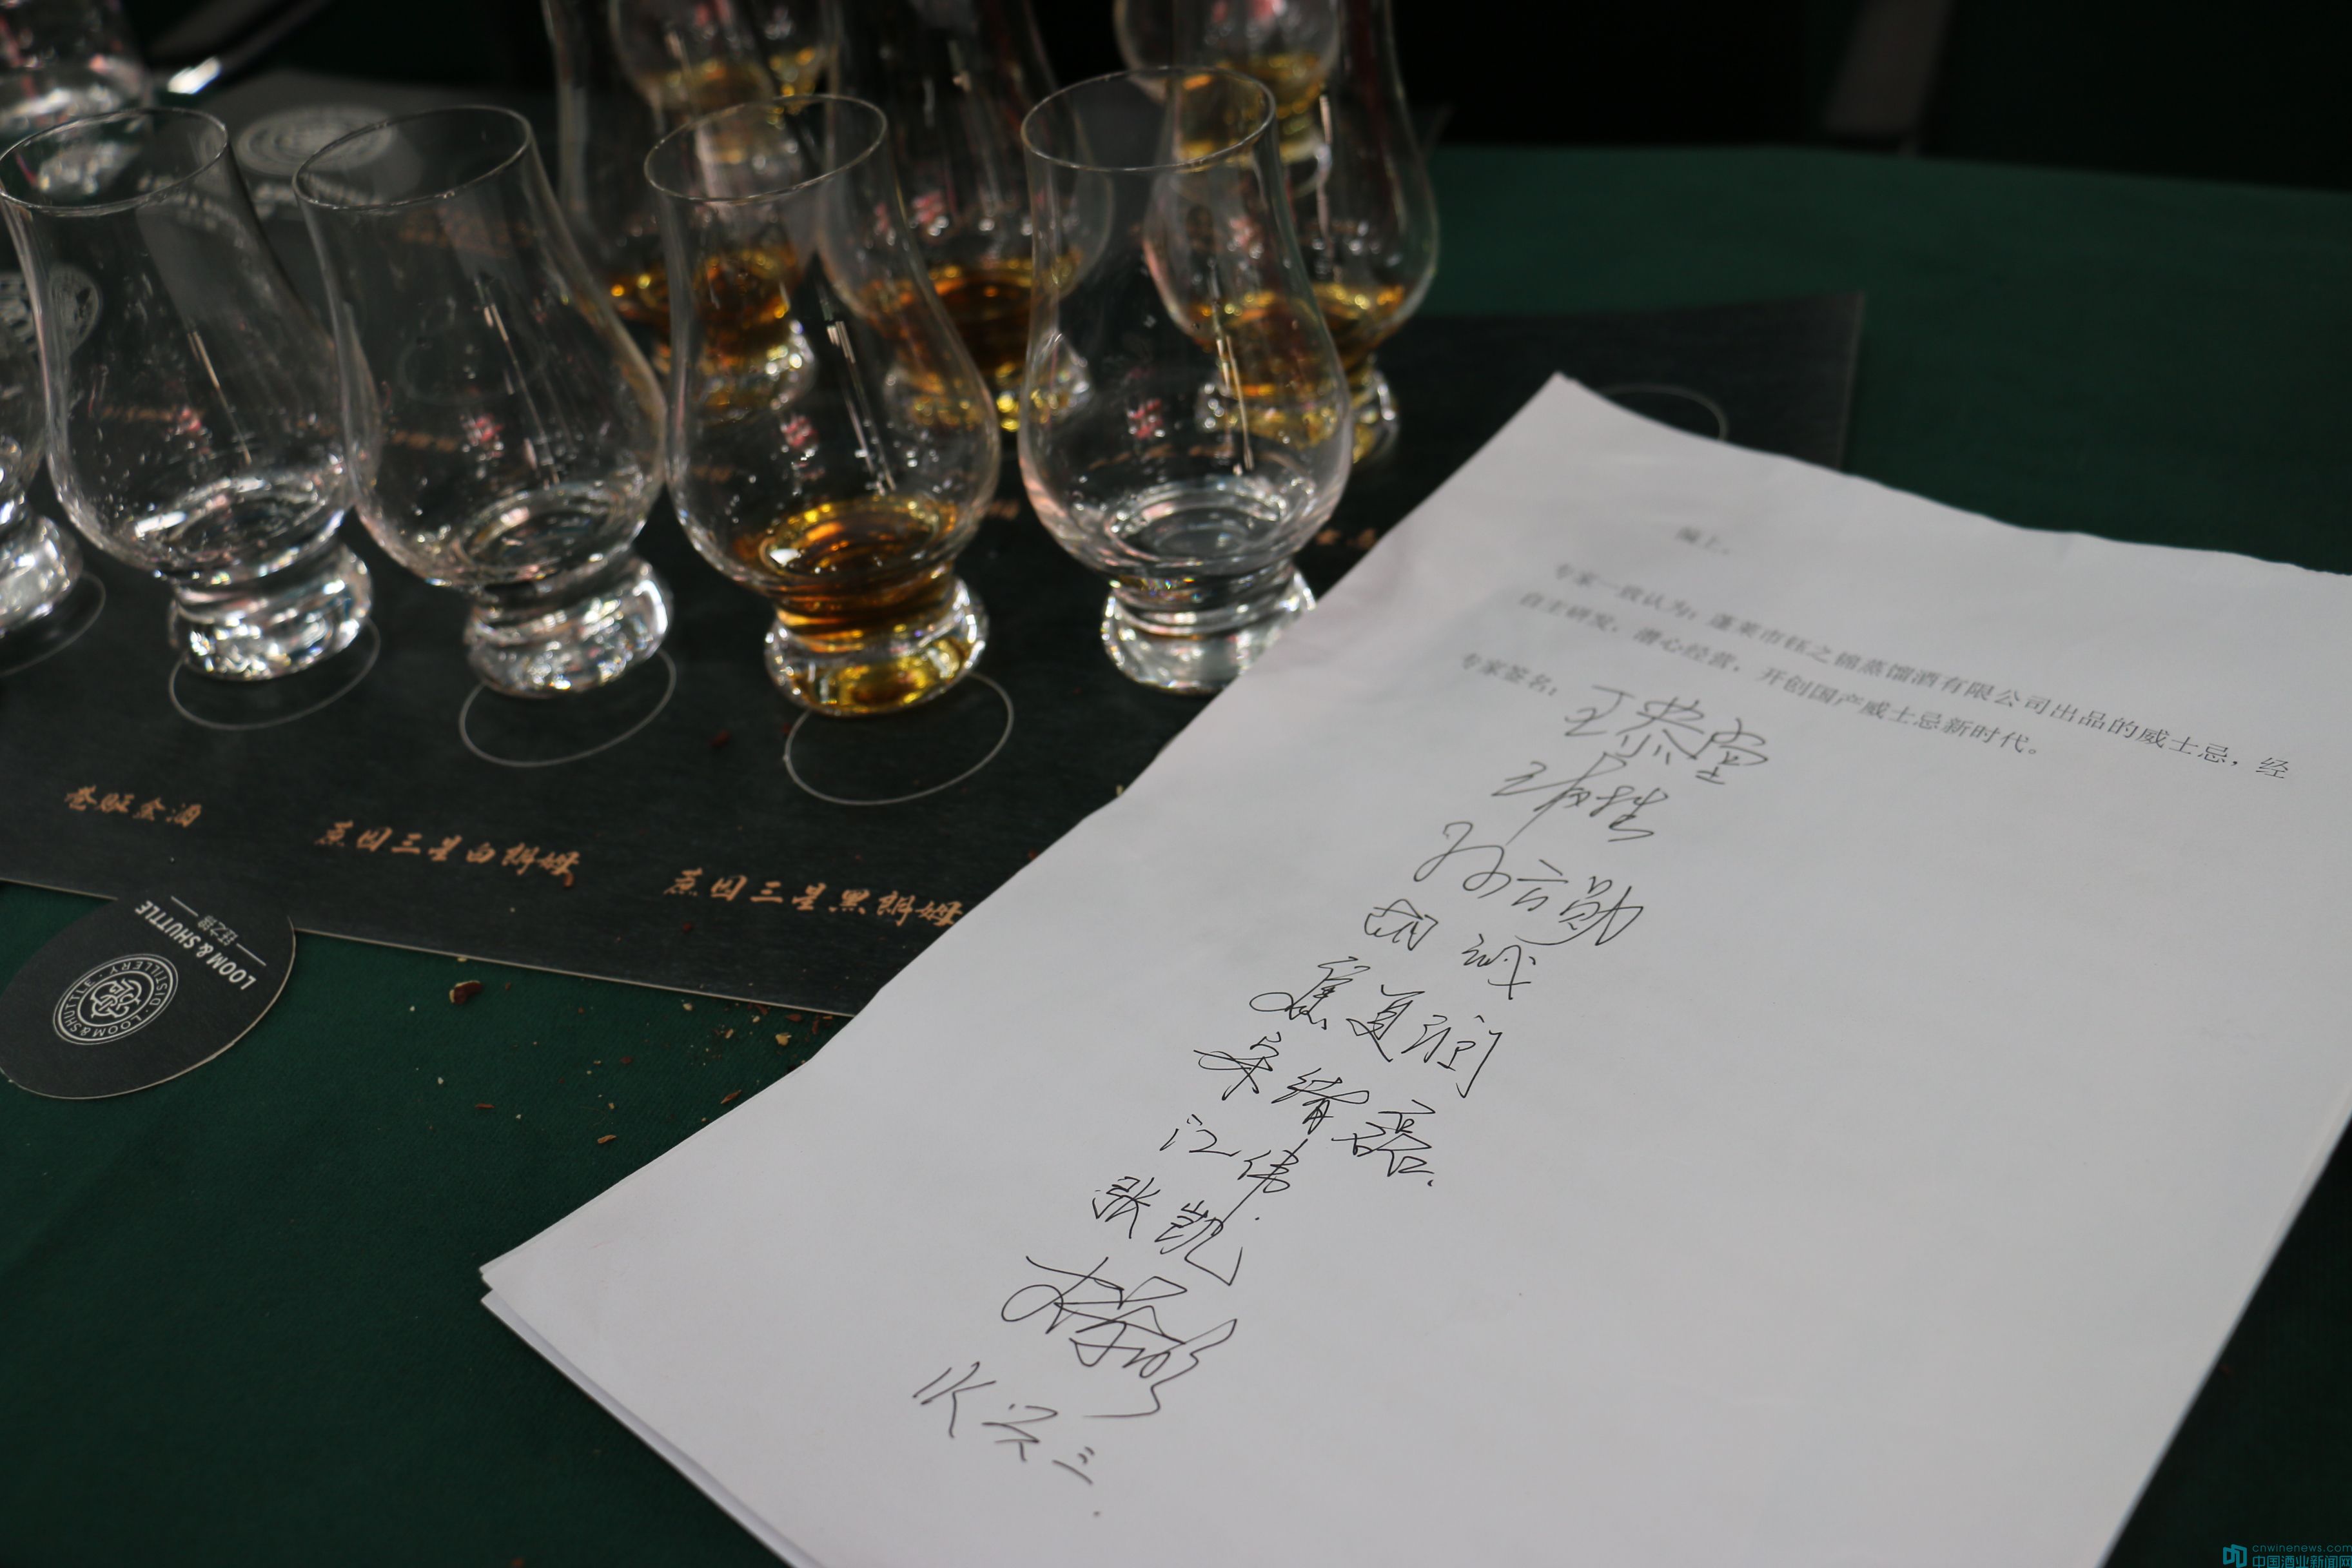 巷贩金酒
蒸因三星白朗姆
蒸因三星黑朗姆
LOOM & SHUTTLE
钰之锦
LOOM & SHUTTLE · DISTILLERY ·
综上，
专家一致认为：蓬莱市钰之锦蒸馏酒有限公司出品的威士忌，经
自主研发，潜心经营，开创国产威士忌新时代。
专家签名：
王恭堂
孙云勋
胡诚
焦复润
宋绪磊
江伟
张凯
cnwinenews.com
中国酒业新闻网